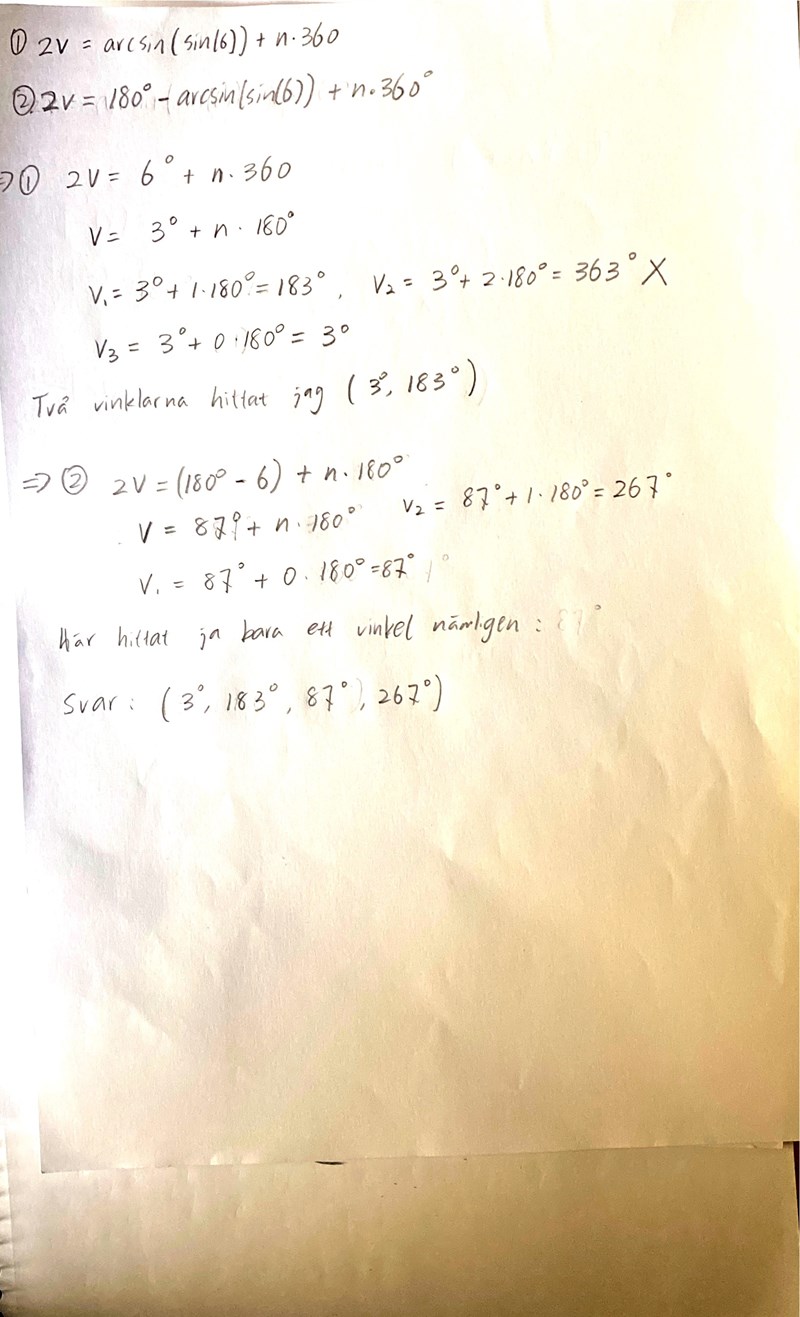 ① 2V = arcsin(sin(6)) + n·360
② 2V = 180° - arcsin(sin(6)) + n·360°
=> ① 2V = 6° + n·360
V = 3° + n·180°
V₁ = 3° + 1·180° = 183°, V₂ = 3° + 2·180° = 363° X
V₃ = 3° + 0·180° = 3°
Två vinklarna hittat jag (3°, 183°)
=> ② 2V = (180° - 6) + n·180°
V = 87° + n·180° V₂ = 87° + 1·180° = 267°
V₁ = 87° + 0·180° = 87°
Här hittat ja bara ett vinkel nämligen : 87°
Svar : (3°, 183°, 87°, 267°)